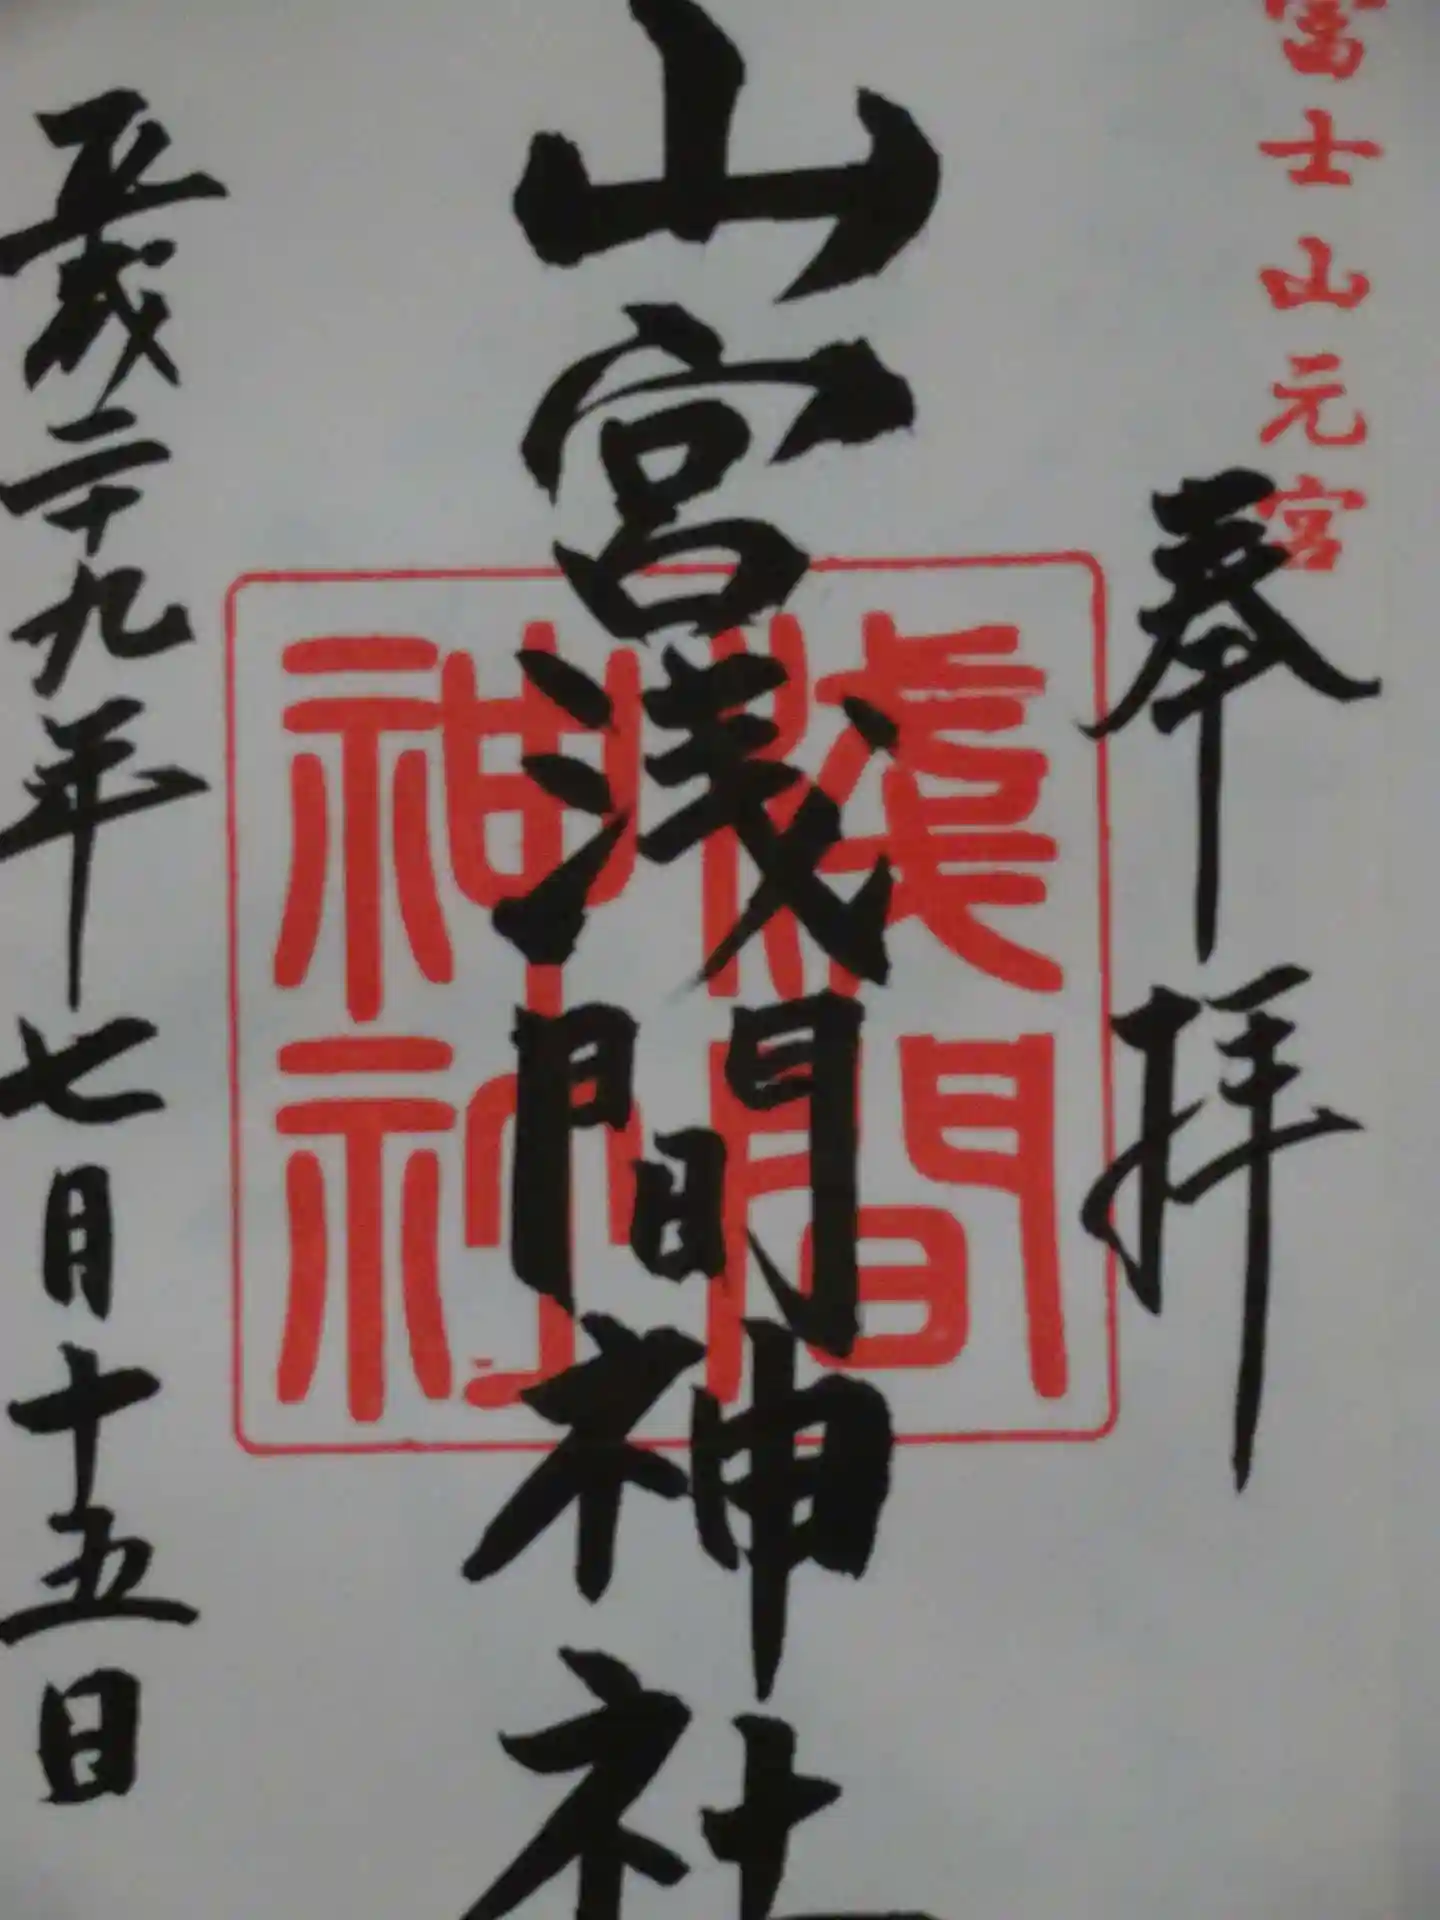 富士山元宮
奉拝
山宮浅間神社
浅間
神社
平成二十九年七月十五日